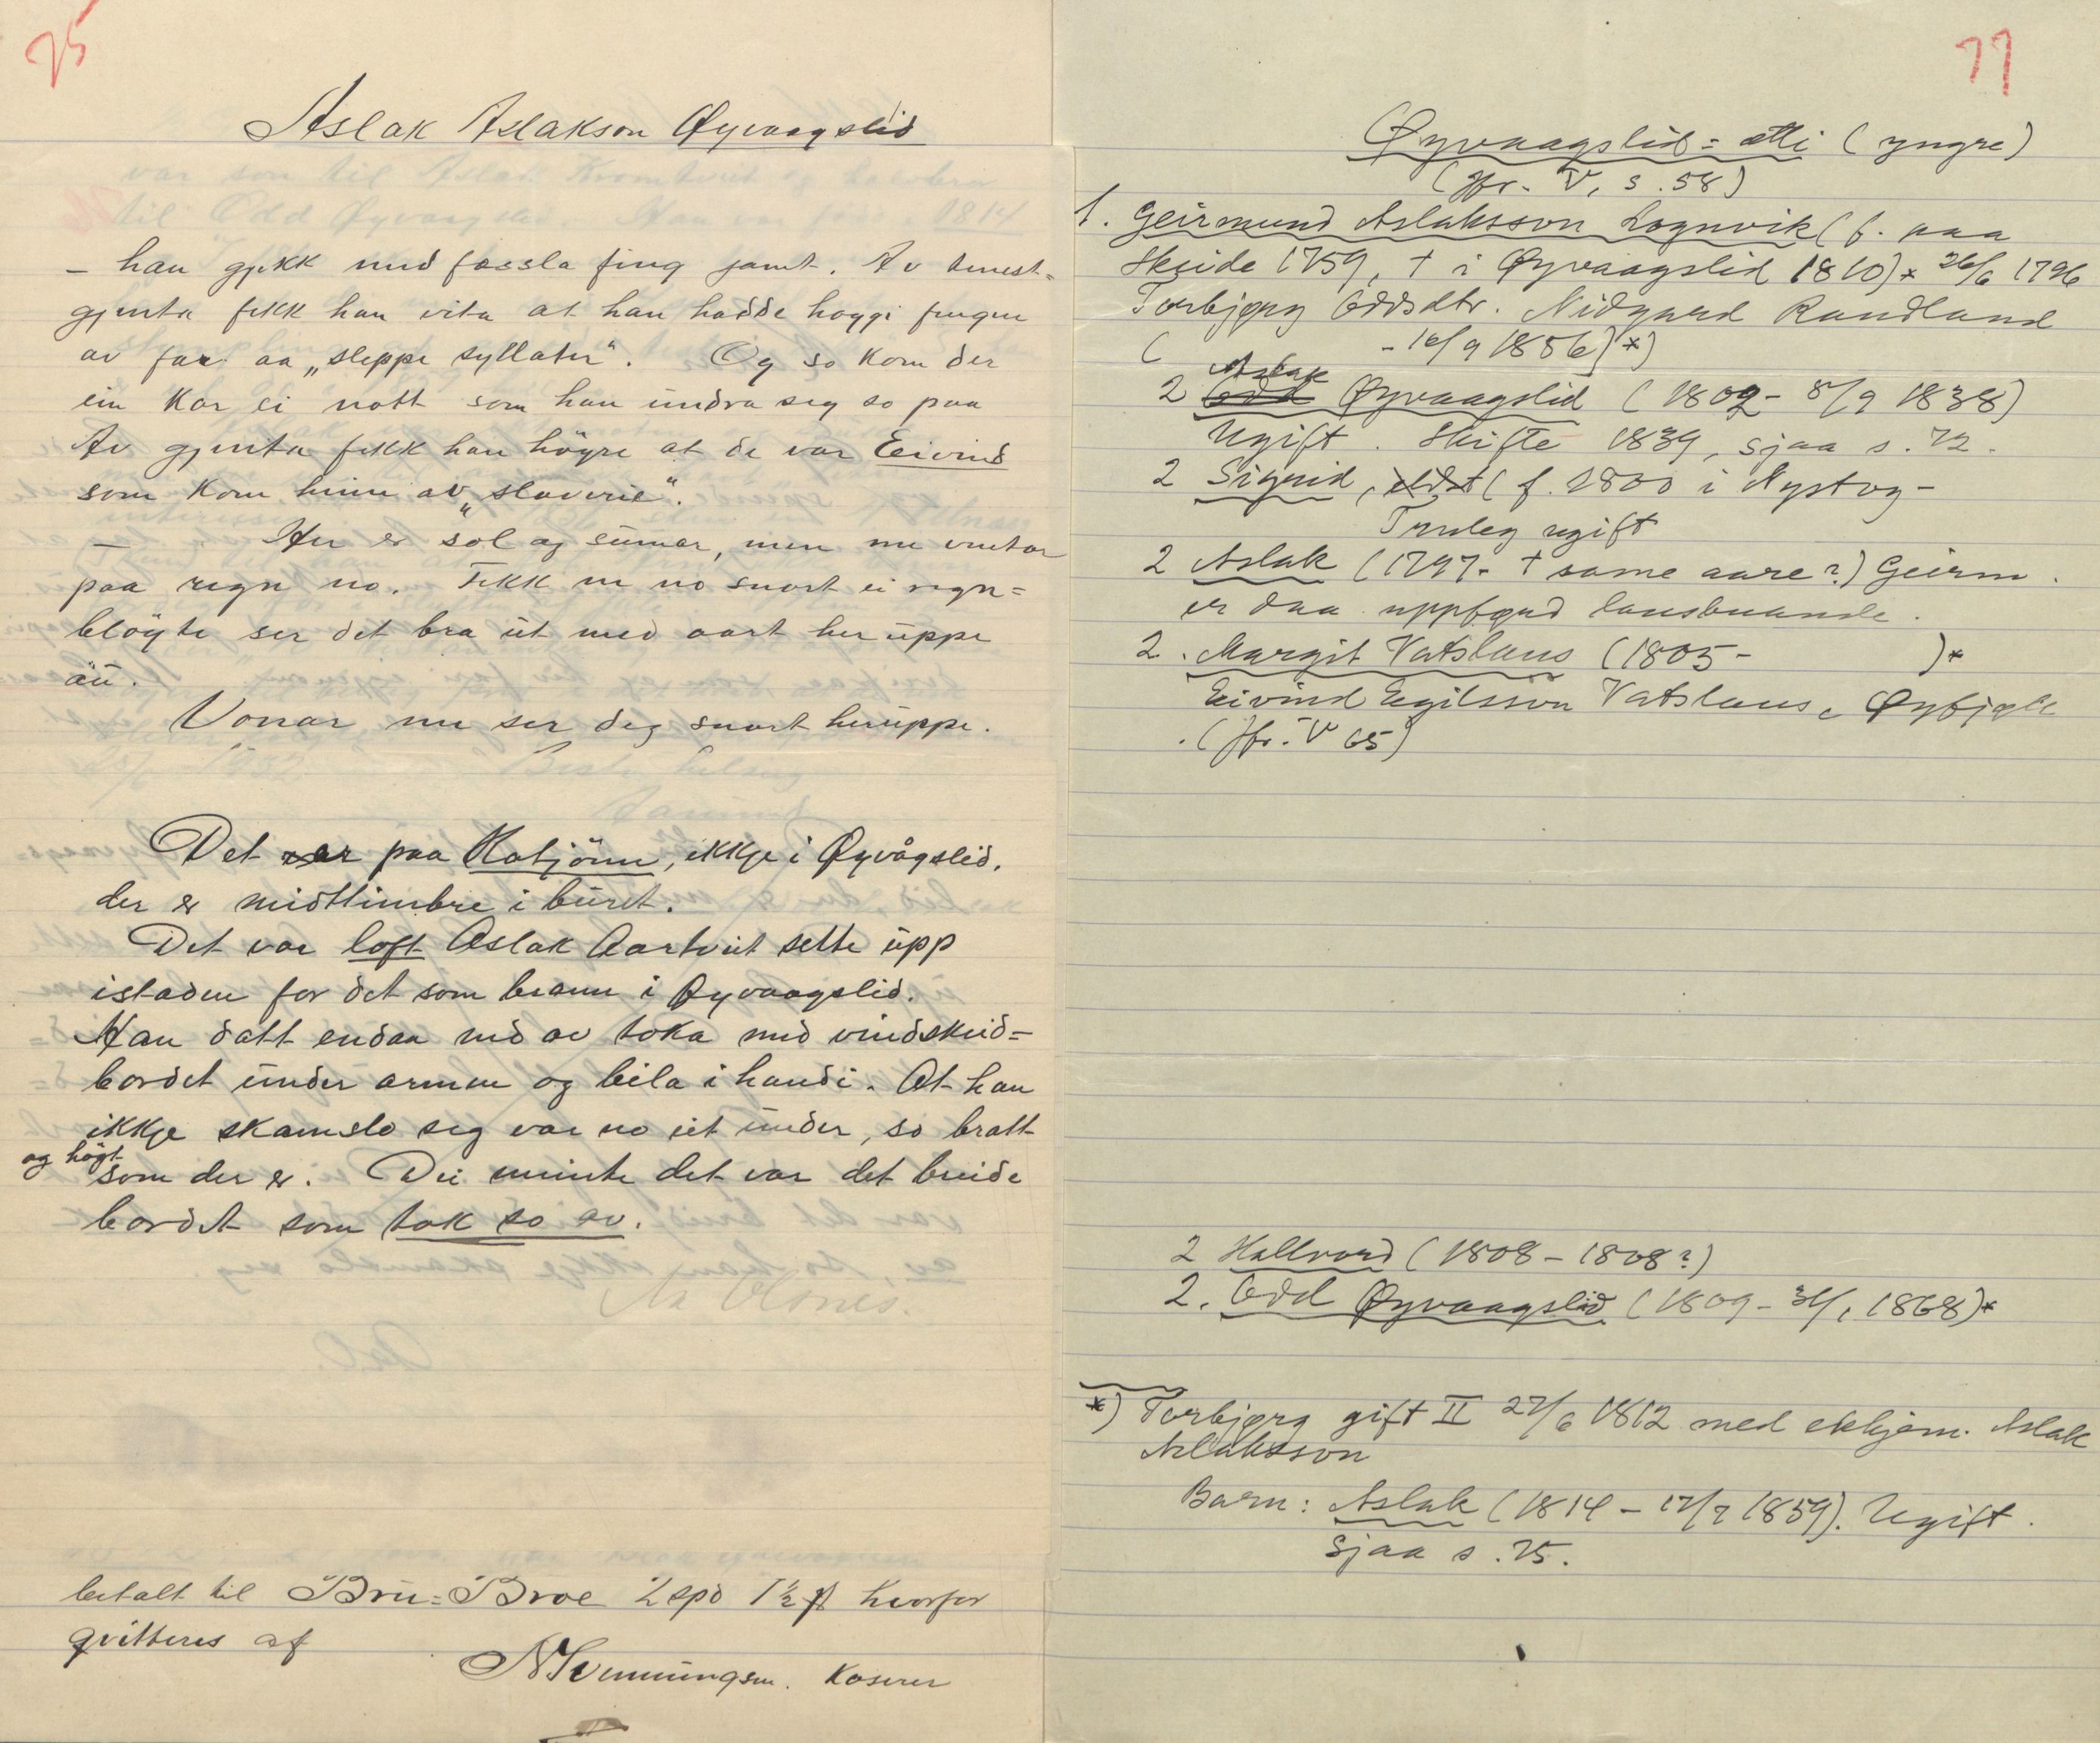 75
Aslak Aslakson Øyvaagslid
– han gjekk med fassla fing jamt. Av tenest=
gjenta fekk han vita at han hadde hoggi fingen
av for aa „sleppe syllater“. Og so kom der
ein kar ei nott som han undra seg so paa
Av gjenta fekk han höyre at de var Eivind
som kom heim av „slaverie“.
– Her er sol og sumar, men me ventar
paa regn no. Fekk me no snart ei regn=
blöyte ser det bra ut med aart her uppe
au.
Vonar me ser deg snart heruppe.
Det var paa Kotjönn, ikkje i Øyvågslid,
der er midtlimbre i buret.
Det var loft Aslak Aartveit sette upp
istaden for det som brann i Øyvaagslid.
Han datt endaa ned av toka med vindskeid=
bordet under armen og bila i handi. At han
ikkje skamslo seg var no eit under, so bratt
og högt
som der er. Dei meinte det var det breide
bordet som tok so av.
betalt til Bru= Broe 2 spd 1½ ß hvorfor
qvitteres af
N Henningsen. Kaserer
77
Øyvaagslid=ætti (yngre)
(Jfr. V, s. 58)
1. Geirmund Aslaksson Lognvik (f. paa
Skeide 1759, † i Øyvaagslid 1810)* 26/6 1796
Torbjørg Oddsdtr. Nidgard Raudland
( – 16/9 1856)*)
Aslak
2 Odd Øyvaagslid (1802– 5/9 1838)
Ugift. Skifte 1839, sjaa s. 72.
2 Sigrid, eldst (f. 1800 i Nystog –
Truleg ugift
2 Aslak (1797– † same aare?) Geirm.
er daa uppførd lausbuande.
2. Margit Vatslaus (1805– )*
Eivind Egilsson Vatslaus, Øyfjell
. (Jfr. V 65)
2 Hallvord (1808–1808?)
2. Odd Øyvaagslid (1809– 31/1 1868)*
*) Torbjørg gift II 27/6 1812 med ekkjem. Aslak
Aslaksson
Barn: Aslak (1814– 17/7 1859). Ugift.
Sjaa s. 75.